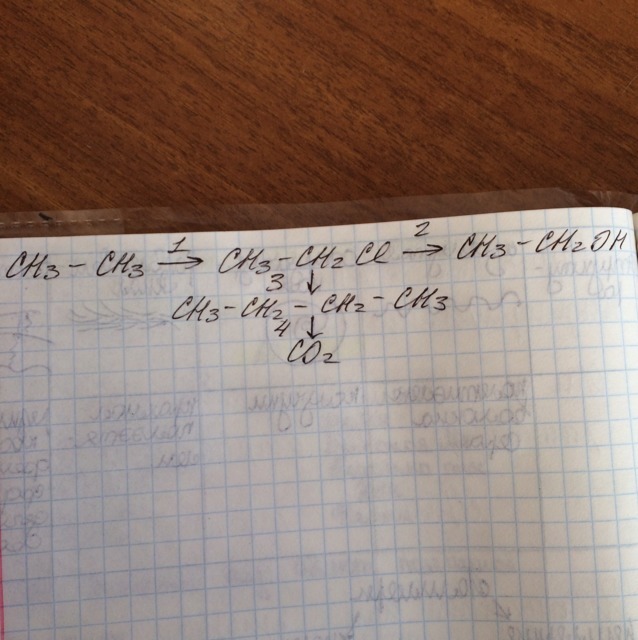 CH3 - CH3 1→ CH3 - CH2 Cl 2→ CH3 - CH2OH
3 ↓
CH3 - CH2 - CH2 - CH3
4 ↓
CO2